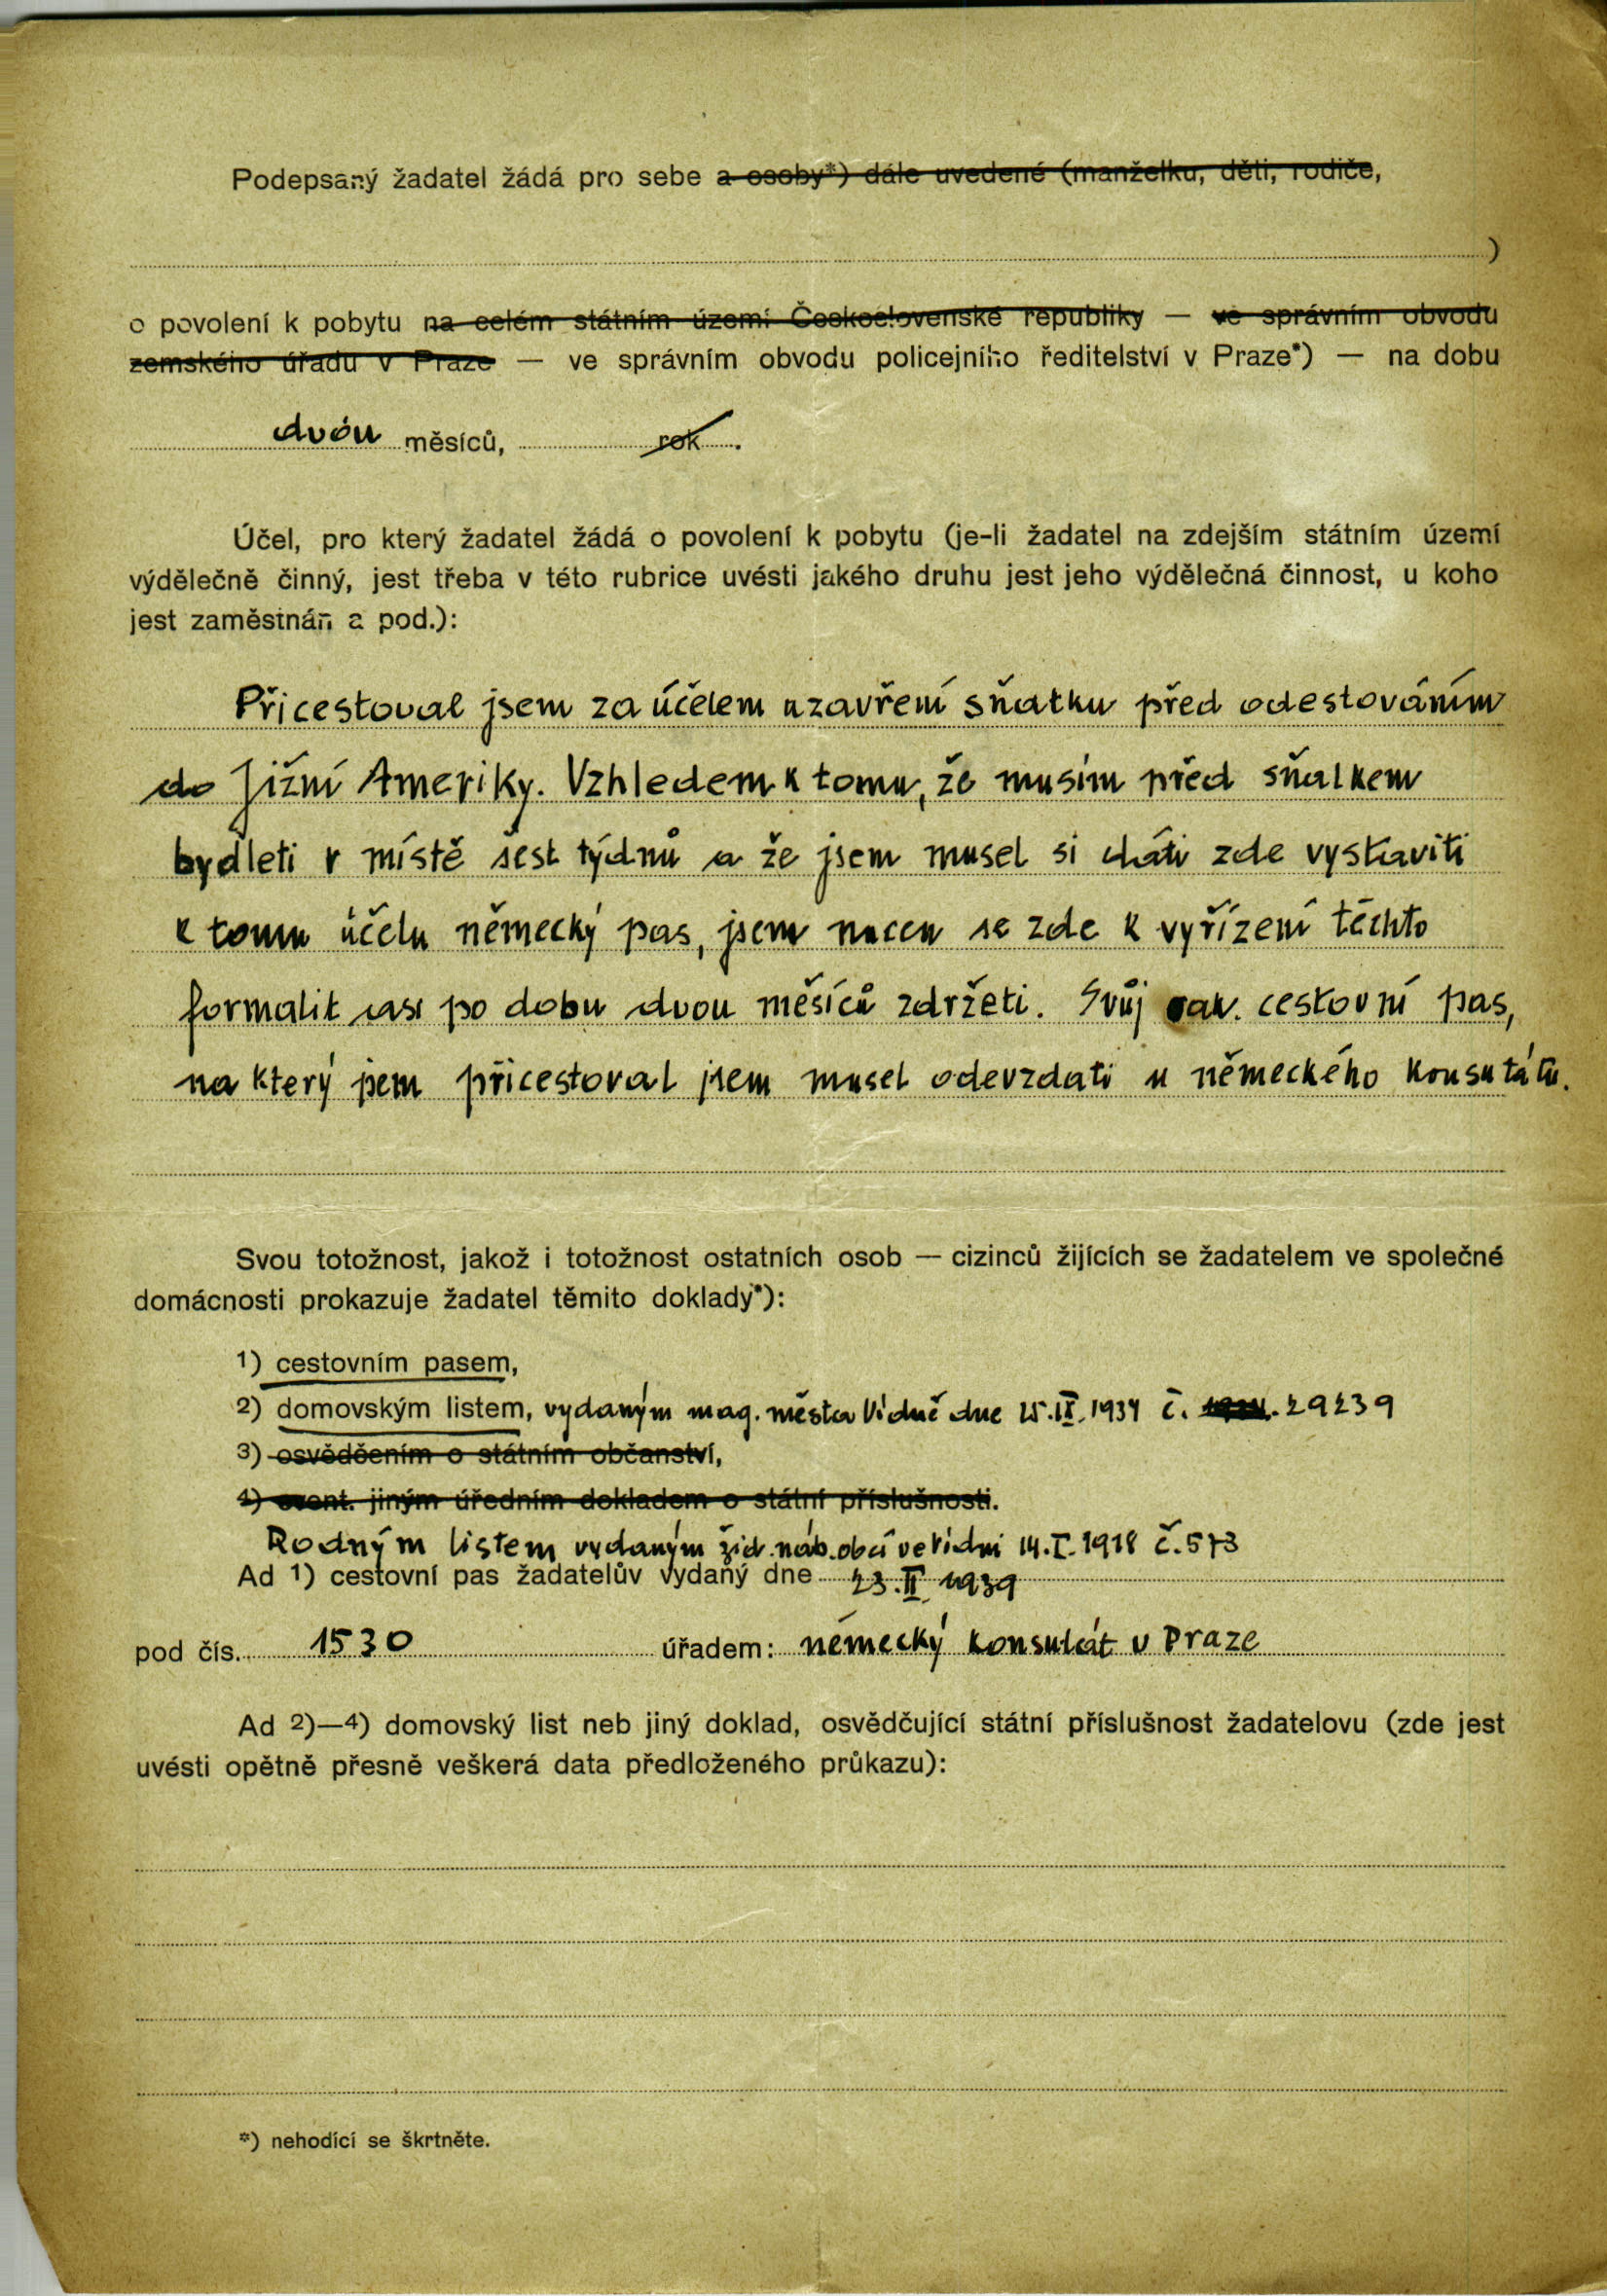 Podepsaný žadatel žádá pro sebe a osoby*) dále uvedené (manželku, děti, rodiče,
)
o povolení k pobytu na celém státním území Československé republiky — ve správním obvodu
zemského úřadu v Praze — ve správním obvodu policejního ředitelství v Praze*) — na dobu
dvou měsíců, rok.
Účel, pro který žadatel žádá o povolení k pobytu (je-li žadatel na zdejším státním území
výdělečně činný, jest třeba v této rubrice uvésti jakého druhu jest jeho výdělečná činnost, u koho
jest zaměstnán a pod.):
Přicestoval jsem za účelem uzavření sňatku před odestováním
do Jižní Ameriky. Vzhledem k tomu, že musím před sňatkem
bydleti v místě šest týdnů a že jsem musel si dáti zde vystaviti
k tomu účelu německý pas, jsem nucen se zde k vyřízení těchto
formalit asi po dobu dvou měsíců zdržeti. Svůj rak. cestovní pas,
na který jsem přicestoval jsem musel odevzdati u německého konsulátu.
Svou totožnost, jakož i totožnost ostatních osob — cizinců žijících se žadatelem ve společné
domácnosti prokazuje žadatel těmito doklady*):
1) cestovním pasem,
2) domovským listem, vydaným mag. města Vídně dne 25.IX.1934 č. 29239
3) osvědčením o státním občanství,
4) event. jiným úředním dokladem o státní příslušnosti.
Rodným listem vydaným žid. náb. obcí ve Vídni 14.I.1918 č. 573
Ad 1) cestovní pas žadatelův vydaný dne 23.II.1939
pod čís. 1530 úřadem: německý konsulát v Praze
Ad 2)—4) domovský list neb jiný doklad, osvědčující státní příslušnost žadatelovu (zde jest
uvésti opětně přesně veškerá data předloženého průkazu):
*) nehodící se škrtněte.